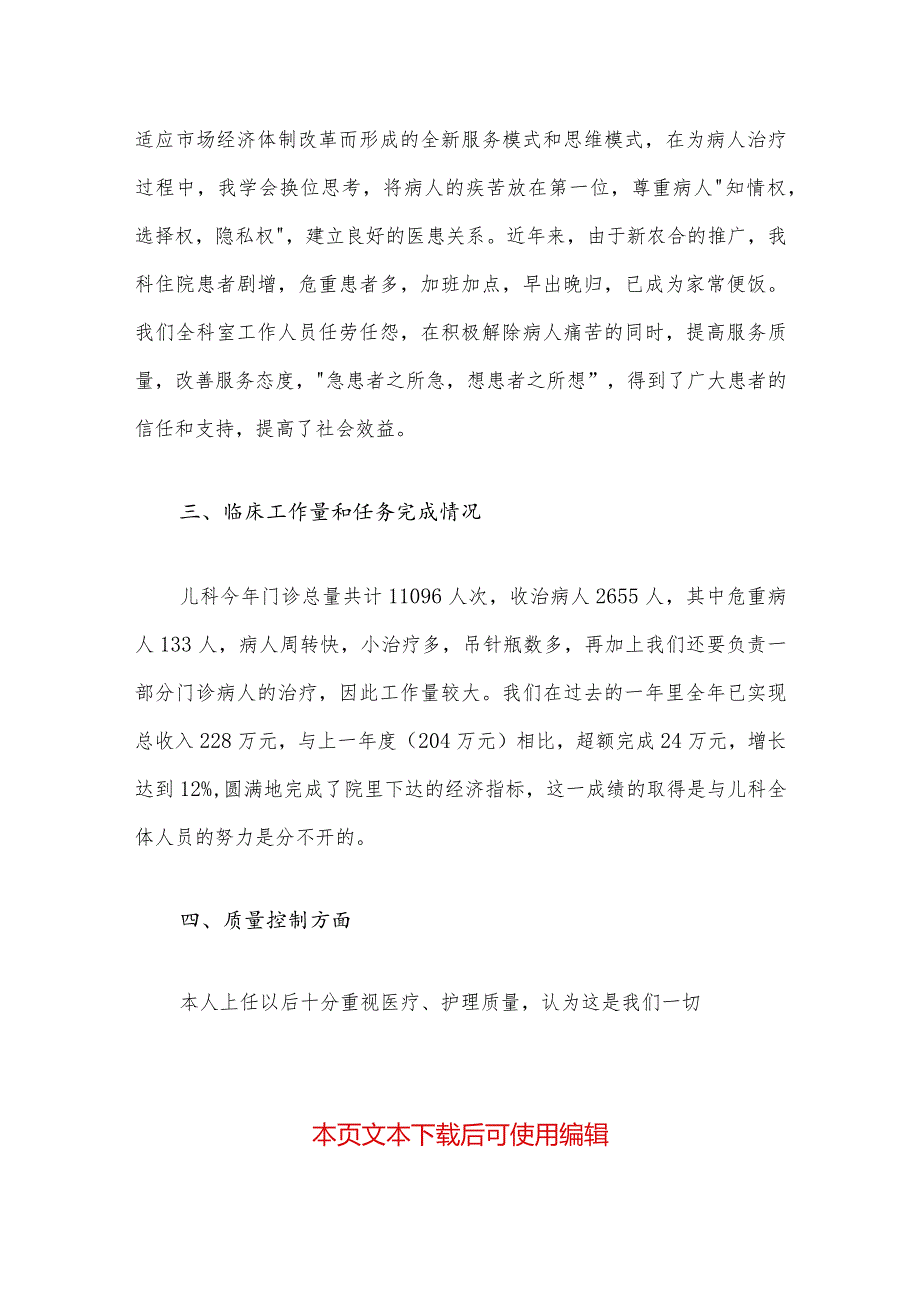 适应市场经济体制改革而形成的全新服务模式和思维模式，在为病人治疗
过程中，我学会换位思考，将病人的疾苦放在第一位，尊重病人"知情权，
选择权，隐私权"，建立良好的医患关系。近年来，由于新农合的推广，我
科住院患者剧增，危重患者多，加班加点，早出晚归，已成为家常便饭。
我们全科室工作人员任劳任怨，在积极解除病人痛苦的同时，提高服务质
量，改善服务态度，"急患者之所急，想患者之所想”，得到了广大患者的
信任和支持，提高了社会效益。
三、临床工作量和任务完成情况
儿科今年门诊总量共计 11096 人次，收治病人 2655 人，其中危重病
人 133 人，病人周转快，小治疗多，吊针瓶数多，再加上我们还要负责一
部分门诊病人的治疗，因此工作量较大。我们在过去的一年里全年已实现
总收入 228 万元，与上一年度（204 万元）相比，超额完成 24 万元，增长
达到 12%,圆满地完成了院里下达的经济指标，这一成绩的取得是与儿科全
体人员的努力是分不开的。
四、质量控制方面
本人上任以后十分重视医疗、护理质量，认为这是我们一切
本页文本下载后可使用编辑